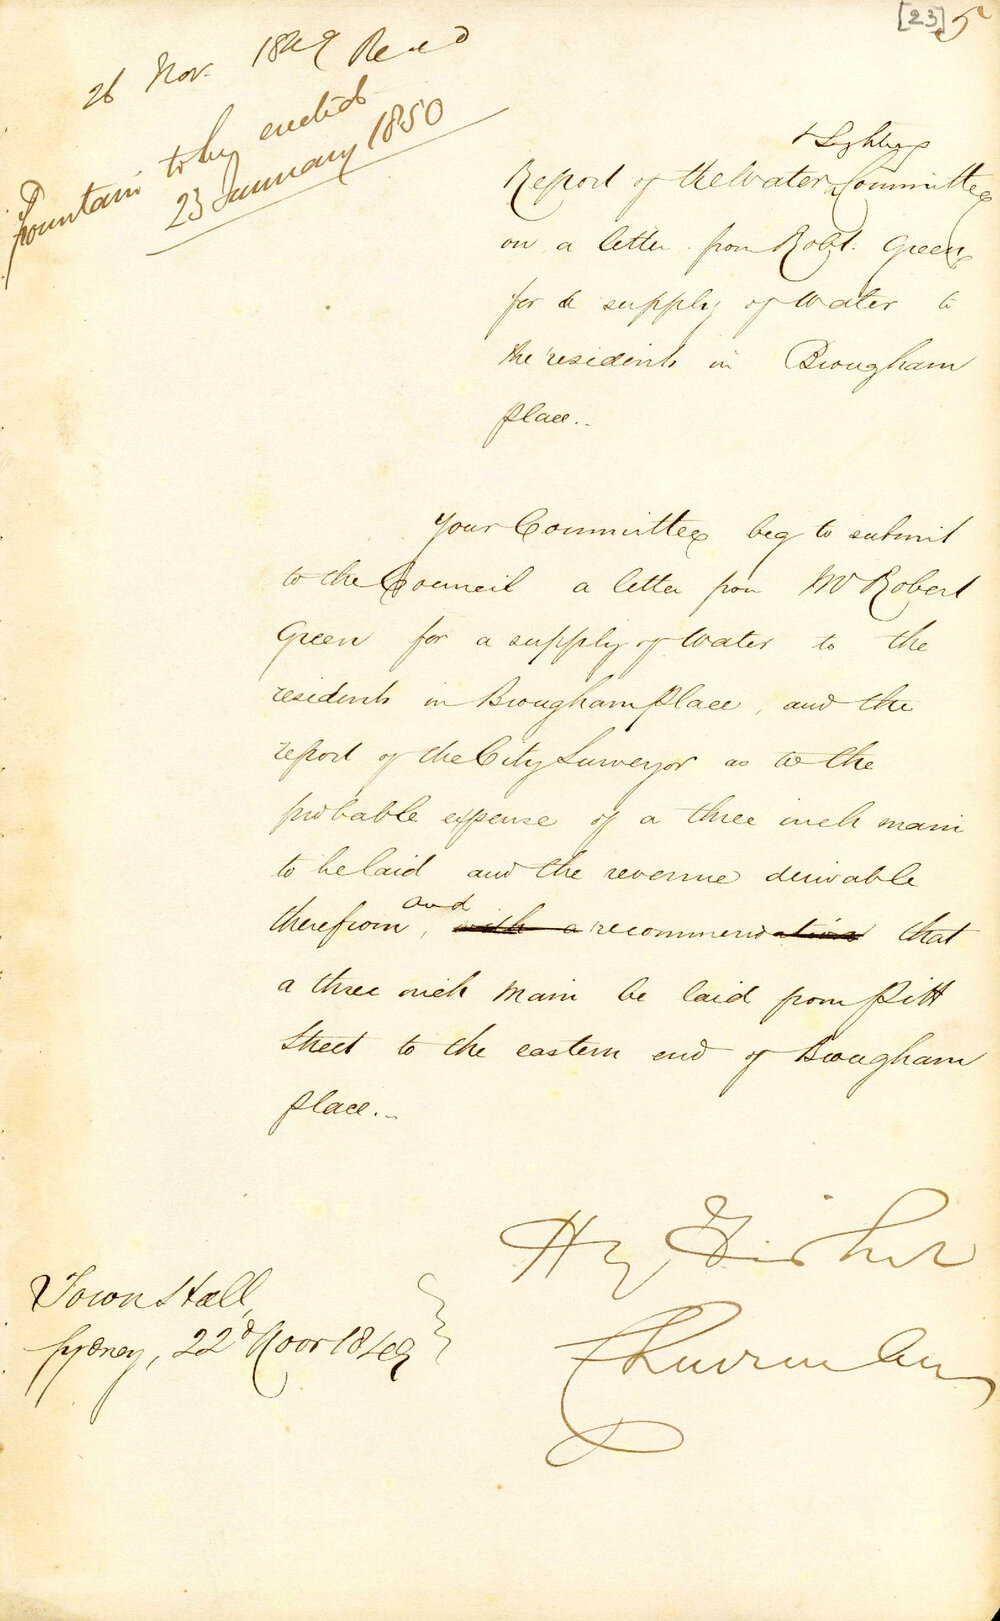 [23] 5
26 Nov. 1849 Read
Fountain to be erected
23 January 1850
& Lighting
Report of the Water Committee
on a letter from Robt. Green
for a supply of Water to
the residents in Brougham
place..
Your Committee beg to submit
to the Council a letter from Mr Robert
Green for a supply of Water to the
residents in Brougham place, and the
report of the City Surveyor as to the
probable expense of a three inch main
to be laid and the revenue derivable
and
therefrom, with a recommendation that
a three inch main be laid from Pitt
Street to the eastern end of Brougham
place..
Hy Fisher
Chairman
Town Hall,
Sydney, 22d Novr 1849